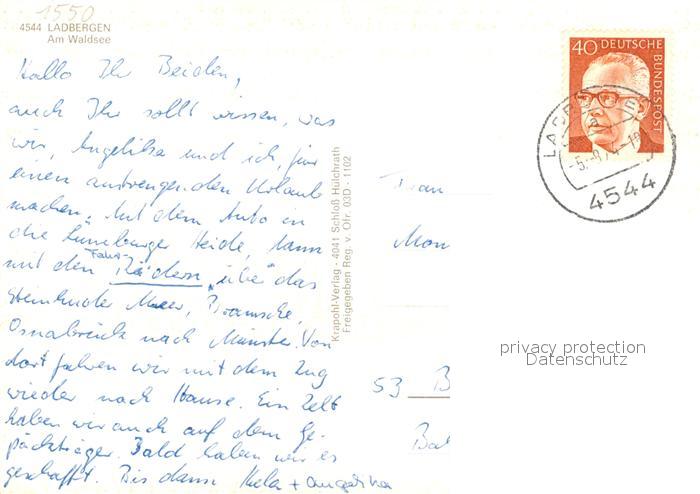 1550
4544 LADBERGEN
Am Waldsee
Hallo Ihr Beiden,
auch Ihr sollt wissen, was
wir, Angelika und ich, für
einen anstrengenden Urlaub
machen. Mit dem Auto in
die Lüneburger Heide, dann
mit den Fahr-Rädern „über“ das
Steinhuder Meer, Bramsche,
Osnabrück nach Münster. Von
dort fahren wir mit dem Zug
wieder nach Hause. Ein Zelt
haben wir auch auf dem Ge-
päckträger. Bald haben wir es
geschafft. Bis dann + Angelika
Krapohl-Verlag · 4041 Schloß Hülchrath
Freigegeben Reg. v. Ofr. 03D · 1102
40 DEUTSCHE BUNDESPOST
4544
Frau
Mon
53 B
privacy protection
Datenschutz